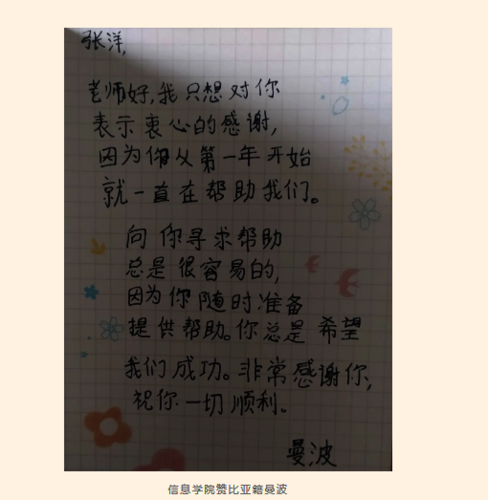 张洋,
老师好,我只想对你
表示衷心的感谢,
因为你从第一年开始
就一直在帮助我们。
向你寻求帮助
总是很容易的,
因为你随时准备
提供帮助。你总是希望
我们成功。非常感谢你,
祝你一切顺利。
曼波
信息学院赞比亚籍曼波